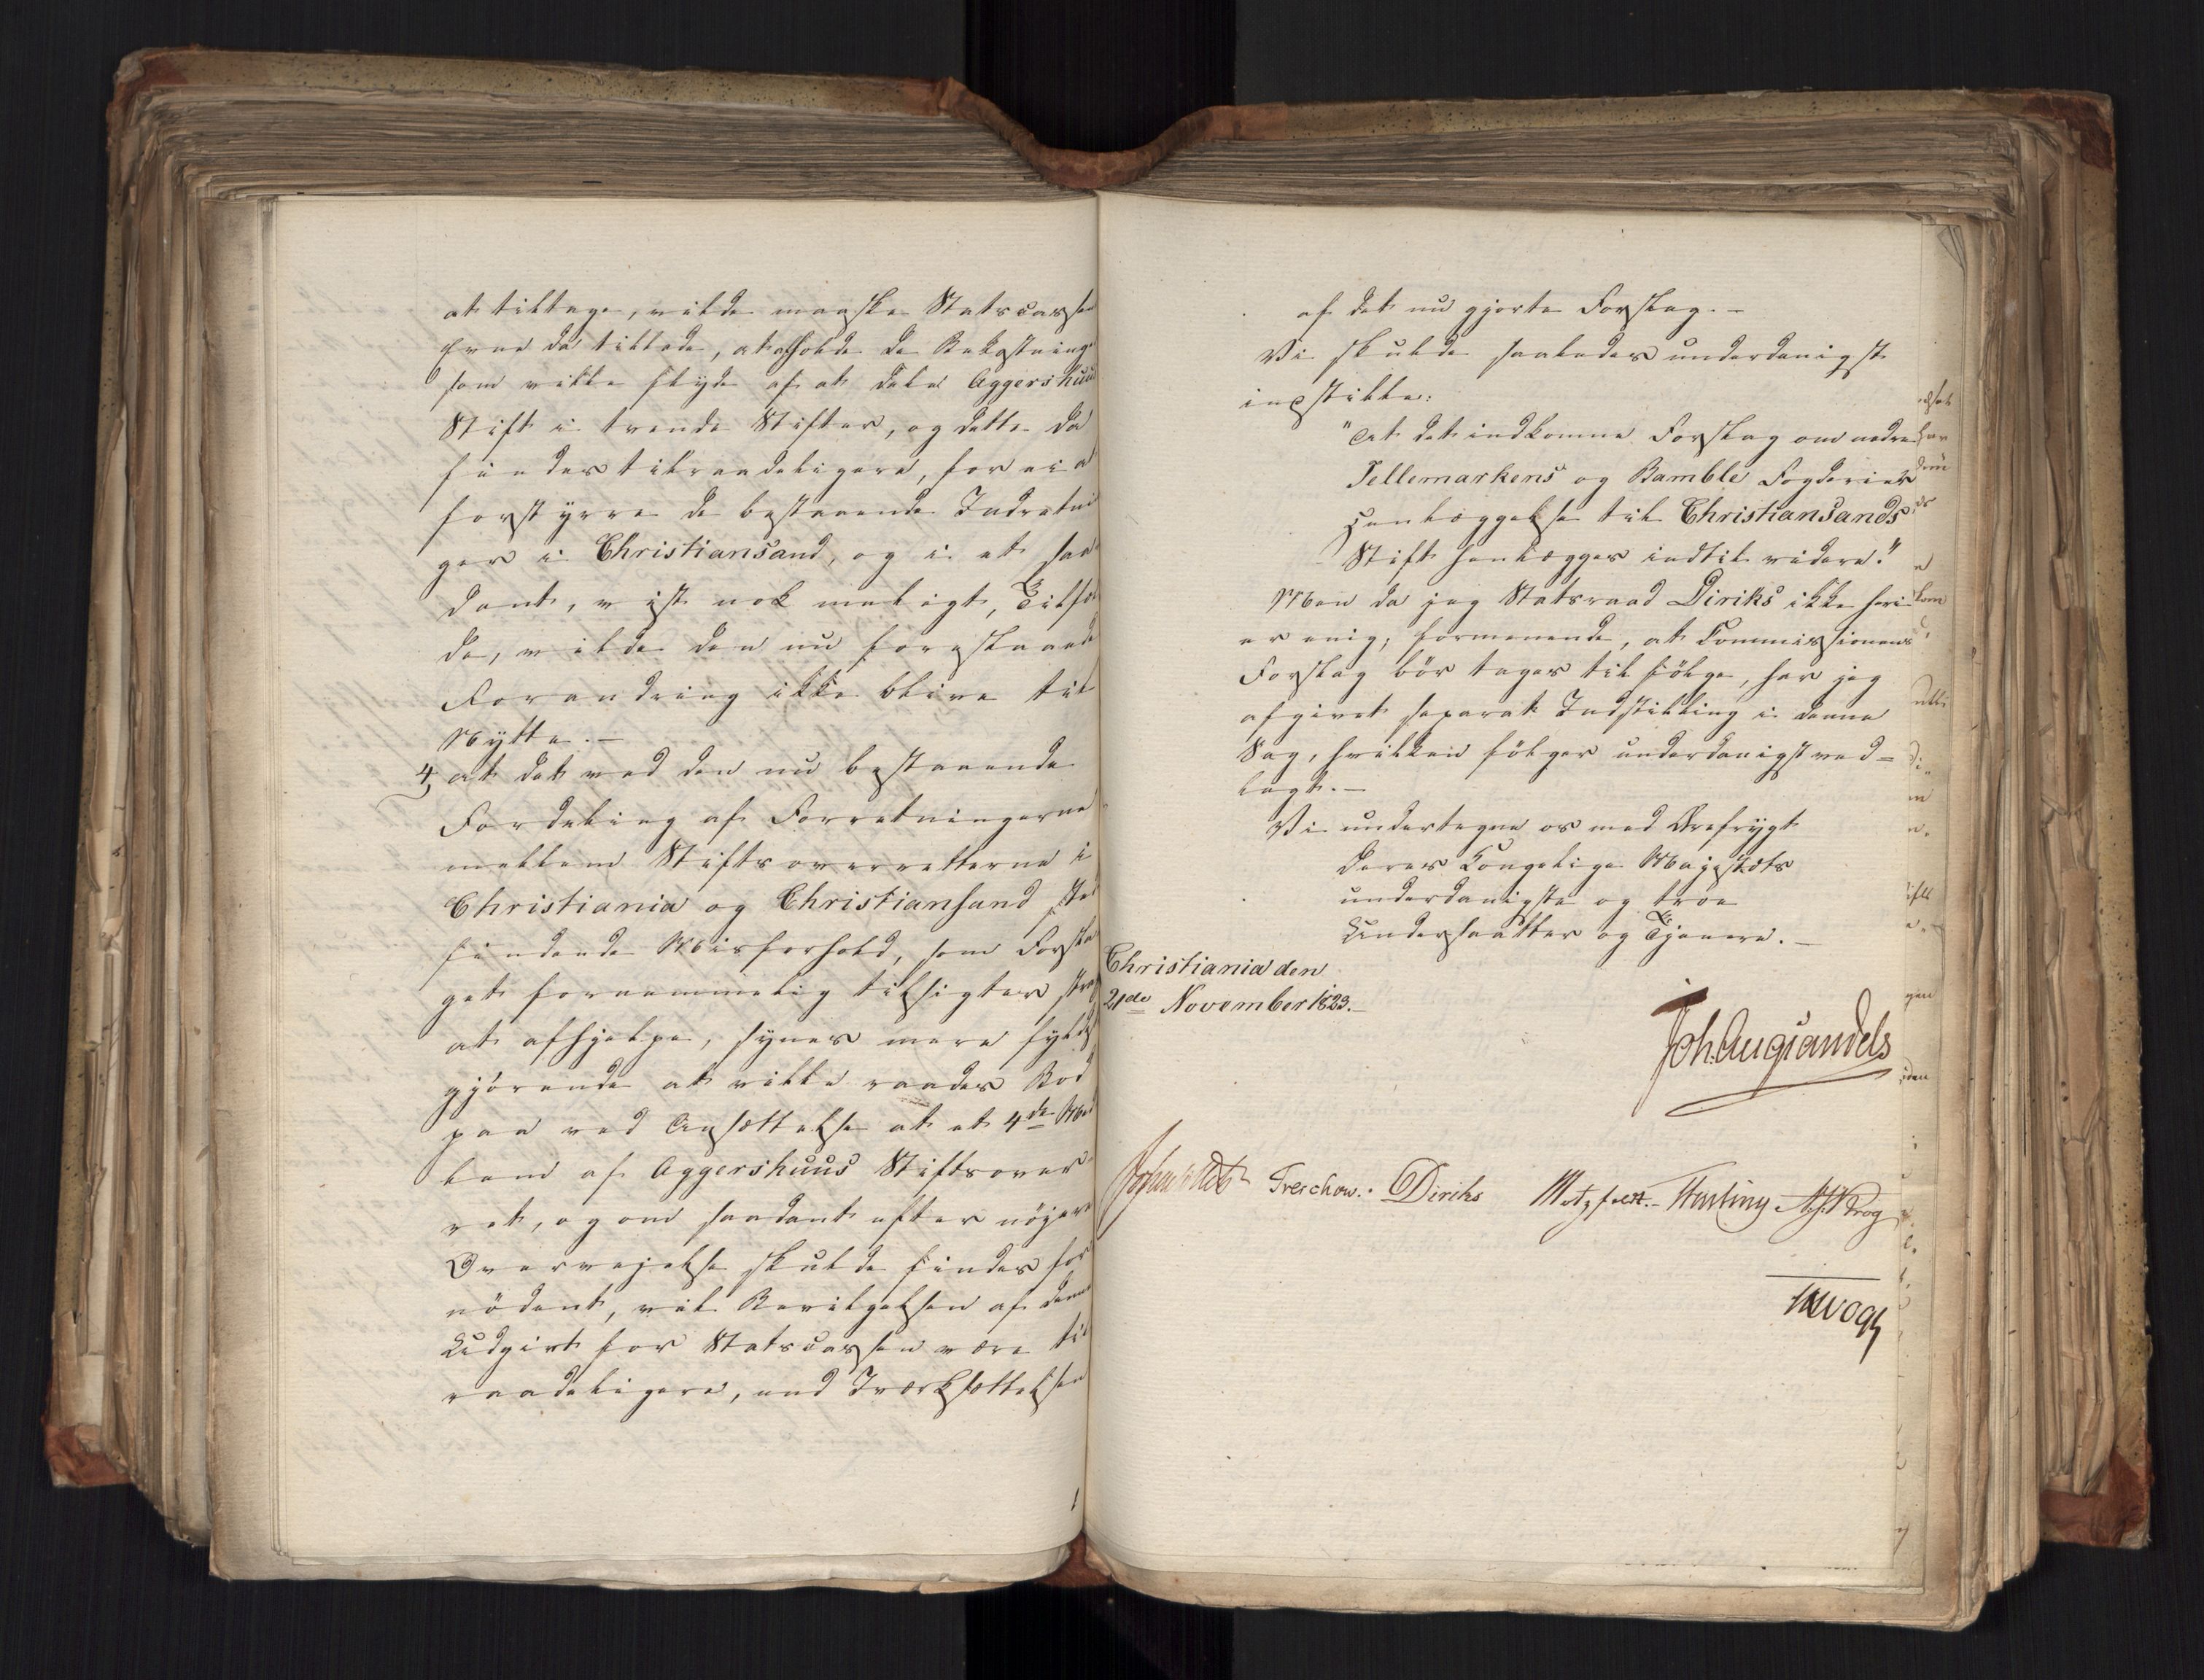 at tiltage, vilde maaske Statscassens
Evne da tillade, at afholde de Bekostninger
som ville flyde af at dele Aggershuus
Stift i tvende Stifter, og dette da
findes tilraadeligere, for ei at
forstyrre de bestaaende Indretnin
ger i Christiansand, og i et saa
dant, vist nok muligt, Tilfæl
de, vilde den nu foreslaaede
Forandring ikke blive til
Nytte. —
4, at det ved den nu bestaaende
Fordeling af Forretningerne
mellem Stiftsoverretterne i
Christiania og Christiansand sted
findende Misforhold, som Forsla
get fornemmelig tilsigter strax
at afhjelpe, synes mere fyldest
gjörende at ville raades Bod
paa ved Ansættelse at et 4de Med
lem af Aggershuus Stiftsover
ret, og om saadant efter nöjere
Overvejelse skulde findes for
nödent, vil Bevilgelsen af denne
Udgivt for Statscassen være til
raadeligere, end Iværksættelsen
af det nu gjorte Forslag. —
Vi skulde saaledes underdanigst
indstille:
"At det indkomne Forslag om nedre
Tellemarkens og Bamble Fogderiers
Henlæggelse til Christiansands
Stift henlægges indtil videre."
Men da jeg Statsraad Diriks ikke heri
er enig, formenende, at Commissionens
Forslag bör tages til fölge, har jeg
afgivet separat Indstilling i denne
Sag, hvilken fölger underdanigst ved=
lagt. —
Vi undertegne os med Ærefrygt
Deres Kongelige Majestæts
underdanigste og troe
Undersaatter og Tjenere. —
Christiania den
21de November 1823. —
Joh. Aug Sandels
Treschow. Diriks Motzfeldt. Fasting Krog
Vogt